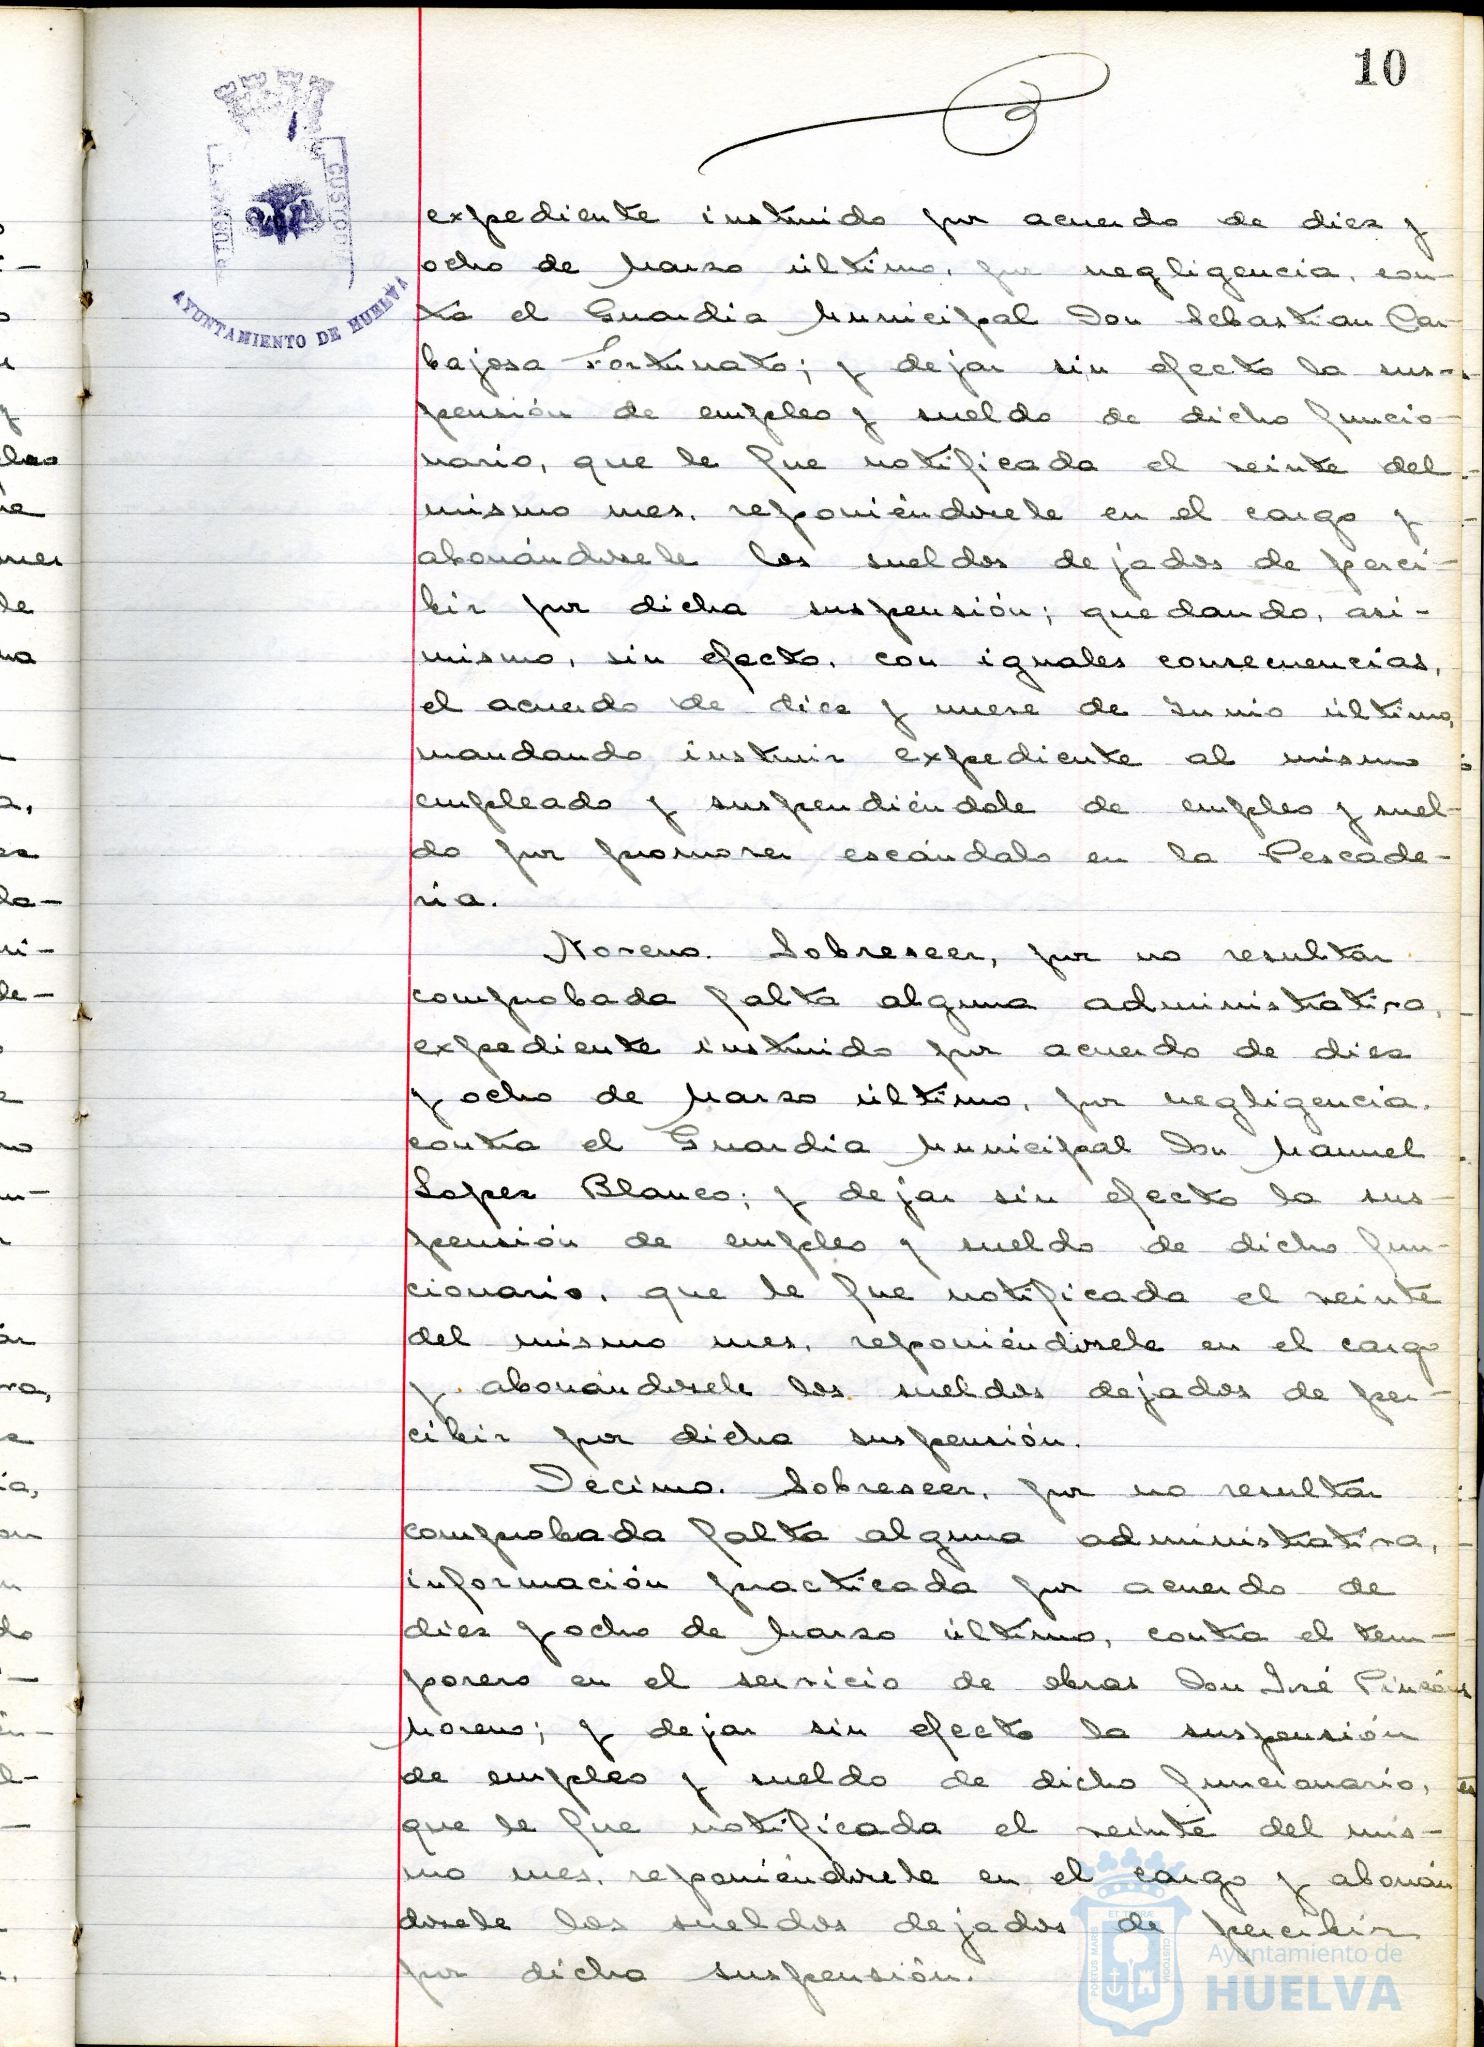 10
AYUNTAMIENTO DE HUELVA
expediente instruido por acuerdo de diez y
ocho de Marzo último, por negligencia, con-
tra el Guardia Municipal Don Sebastian Car-
bajosa Fortunato; y dejar sin efecto la sus-
pensión de empleo y sueldo de dicho funcio-
nario, que le fue notificada el veinte del
mismo mes, reponiéndosele en el cargo y
abonándosele los sueldos dejados de perci-
bir por dicha suspensión; quedando, asi-
mismo, sin efecto, con iguales consecuencias,
el acuerdo de diez y nueve de Junio último,
mandando instruir expediente al mismo
empleado y suspendiéndole de empleo y suel-
do por promover escándalo en la Pescade-
ria.
Noveno. Sobreseer, por no resultar
comprobada falta alguna administrativa,
expediente instruido por acuerdo de diez
y ocho de Marzo último, por negligencia,
contra el Guardia Municipal Don Manuel
Lopez Blanco; y dejar sin efecto la sus-
pensión de empleo y sueldo de dicho fun-
cionario, que le fue notificada el veinte
del mismo mes, reponiéndosele en el cargo
y abonándosele los sueldos dejados de per-
cibir por dicha suspensión.
Decimo. Sobreseer, por no resultar
comprobada falta alguna administrativa,
información practicada por acuerdo de
diez y ocho de Marzo último, contra el tem-
porero en el servicio de obras Don José
Moreno; y dejar sin efecto la suspensión
de empleo y sueldo de dicho funcionario,
que le fue notificada el veinte del mis-
mo mes, reponiéndosele en el cargo y abonán
dosele los sueldos dejados de percibir
por dicha suspensión.
PORTUS MARIS ET TERRÆ CUSTODIA
Ayuntamiento de
HUELVA